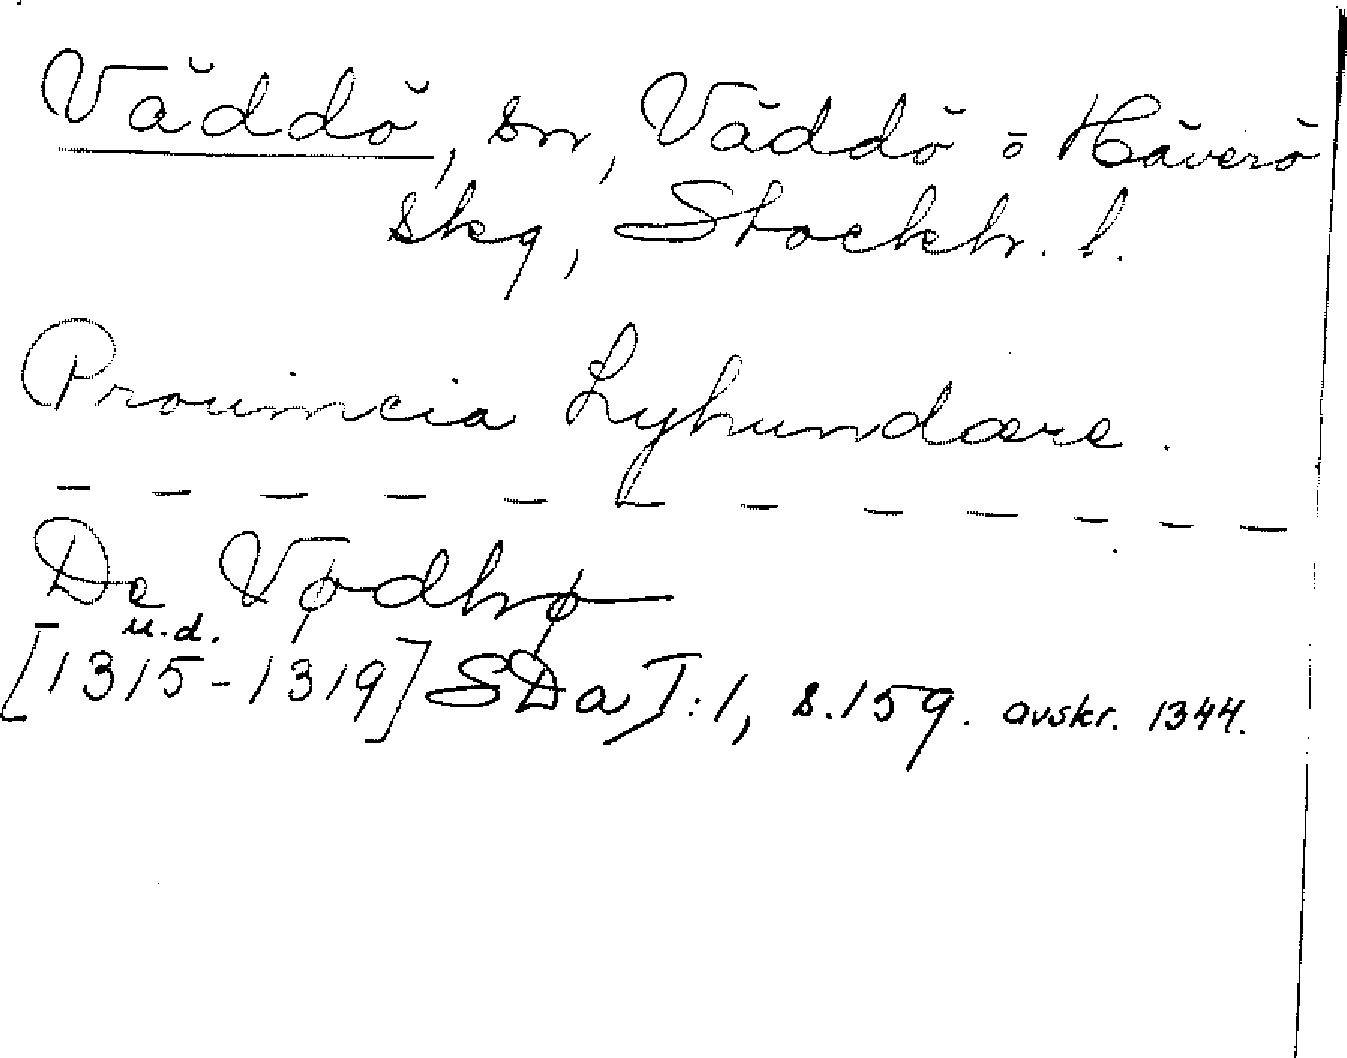 Väddö, sn, Väddö o Häverö
skg, Stockh. l.
Prouincia Lyhundære.
— — — — — — — — — — —
De Vødhø
u.d.
[1315-1319] SDa I:1, s.159. avskr. 1344.